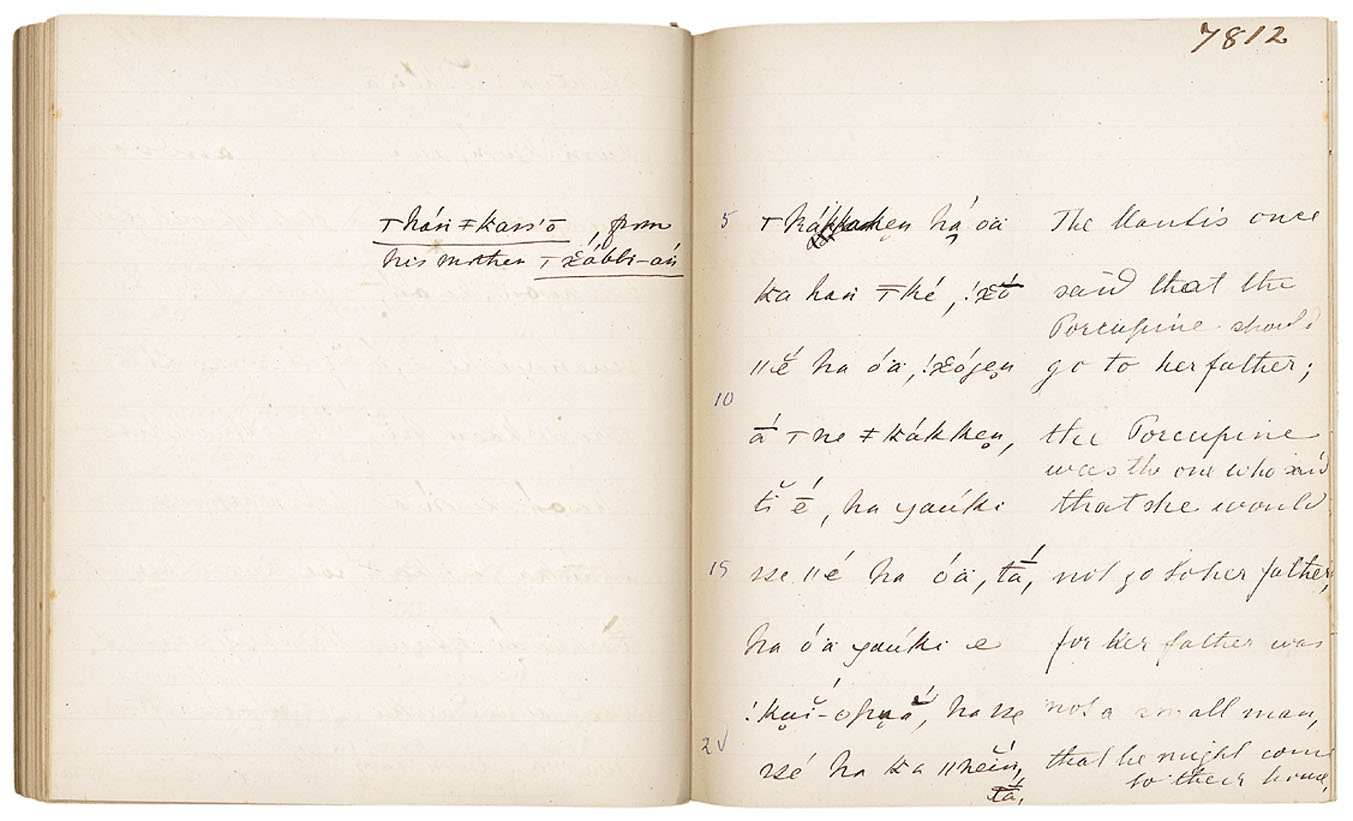 7812
ͳhań ǂkass'ō, from
his mother ͳx̌ábbi-aṅ
5 há óä The Mantis once
ka haṅ ͳké, !x̌ó said that the
Porcupine should
ǁě ha óä, !x̌ógen̥ go to her father;
10
á̄ ͳne ǂkákken̥, the Porcupine
was the one who said
tǐ é̄, ha yaúki that she would
15 sse ǁé ha óä, tá̄, not go to her father,
ha óä yaúki e for her father was
ha sse not a small man,
20
ssé ha ka ǁneíṅ, that he might come
to their house,
tá̄,